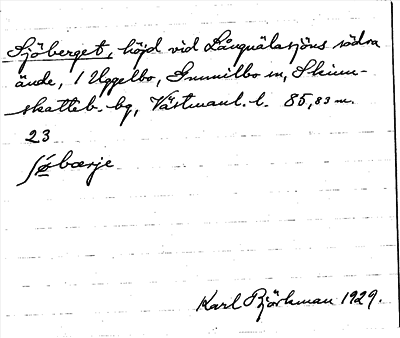 Sjöberget, höjd vid Långnälasjöns södra
ände, 1 Uggelbo, Gunnilbo sn, Skinn-
skatteb. bg, Västmanl. l. 85,83 m.
23
sjöbærje
Karl Björkman 1929.